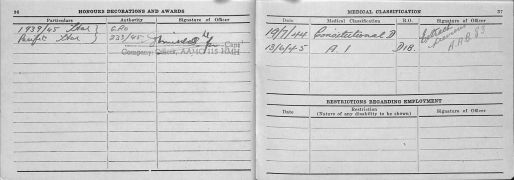 36
HONOURS DECORATIONS AND AWARDS
Particulars Authority Signature of Officer
1939/45 Star GRO
Pacific Star 233/45 Capt
Company Officer, AAMC 115 HMH
MEDICAL CLASSIFICATION 37
Date Medical Classification R.O. Signature of Officer
19/7/44 Constitutional D
13/6/45 A.1 D18.
A.A.B 83
RESTRICTIONS REGARDING EMPLOYMENT
Date Restriction Signature of Officer
(Nature of any disability to be shown)